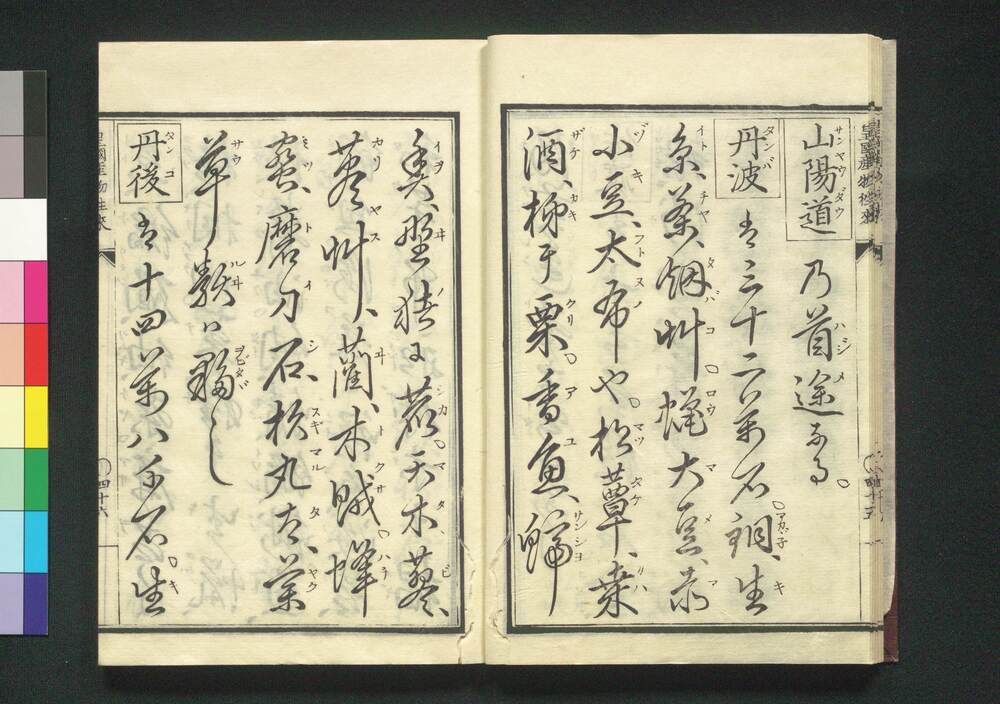 皇國産物往來　四十五
山陽道 乃首途なる。
丹波 は三十二万石。銅、生
糸、茶、烟艸。蝋、大豆、赤
小豆、太布や。松蕈、桑
酒、柹于栗。香魚、
魚、野猪に鹿。天木蓼、
藎艸、藺、木賊。蜂
蜜、磨刀石、杉丸太、薬
草類は夥し
丹後 は十四万八千石。生
皇國産物往來　四十六